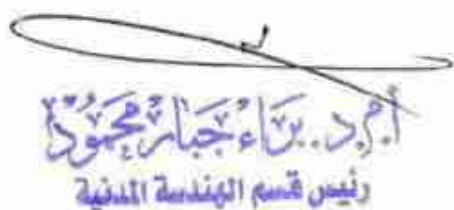 أ.م.د. براء جبار محمود
رئيس قسم الهندسة المدنية